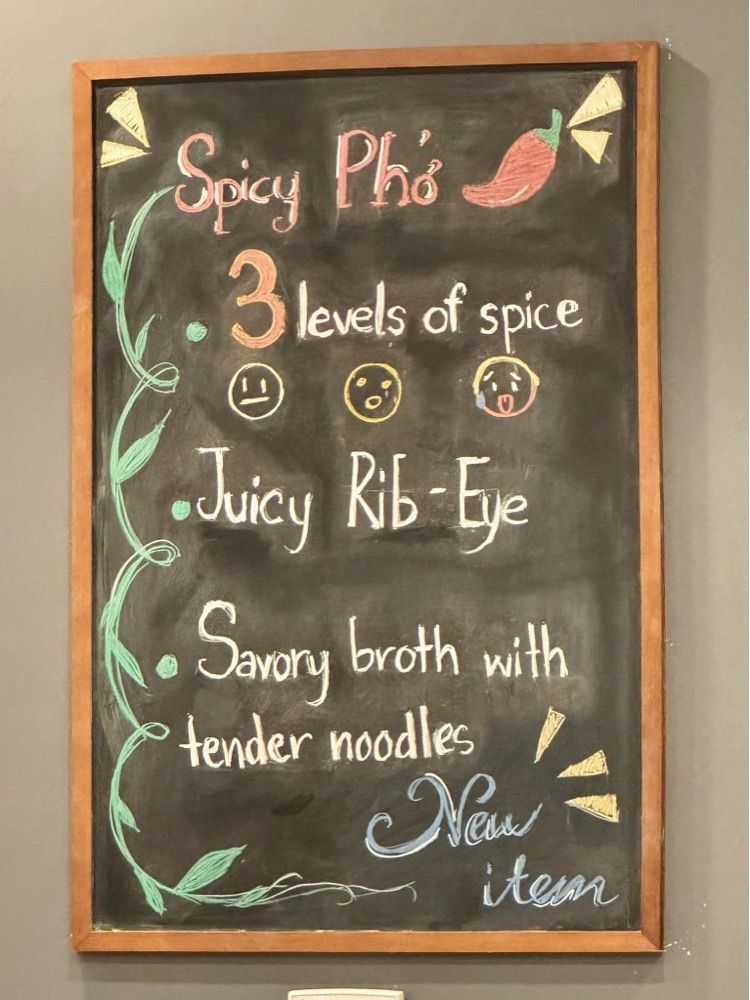 Spicy Phở
3 levels of spice
Juicy Rib-Eye
Savory broth with
tender noodles
New
item